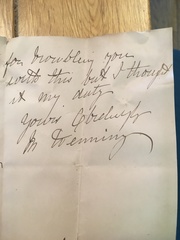 for troubling you
with this but I thought
it my duty
Yours